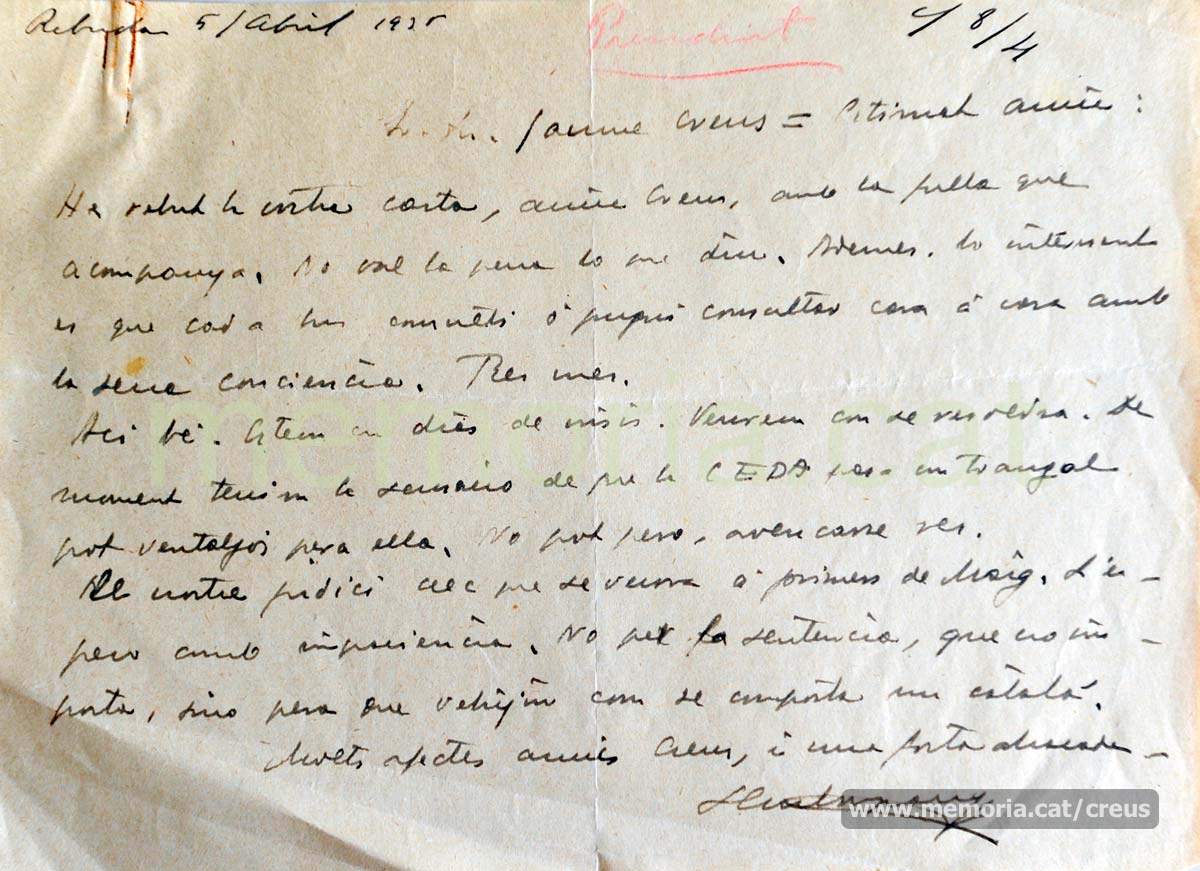 Rebuda 5/Abril 1935
President
8/4
Jaume Creus = Estimat amic:
He rebut la vostra carta, amic Creus, amb la fulla que
acompanya. No val la pena lo que diu. Ademes, lo interesant
es que cada hu consulti o pugui consultar cara á cara amb
la seva conciencia. Res mes.
Aci bé. Estem en dies de crisis. Veurem com se resoldra. De
moment tenim la sensacio de que la CEDA pasa un trangol
pot ventatjos pera ella. No pot pero, avençarse res.
El nostre judici crec que se veura á primers de Maig. L'es-
pero amb impaciencia. No per la sentencia, que no im-
porta, sino pera que vehigin com se comporta un català.
Molts afectes amic Creus, i una forta abraçada -
memoria.cat
www.memoria.cat/creus